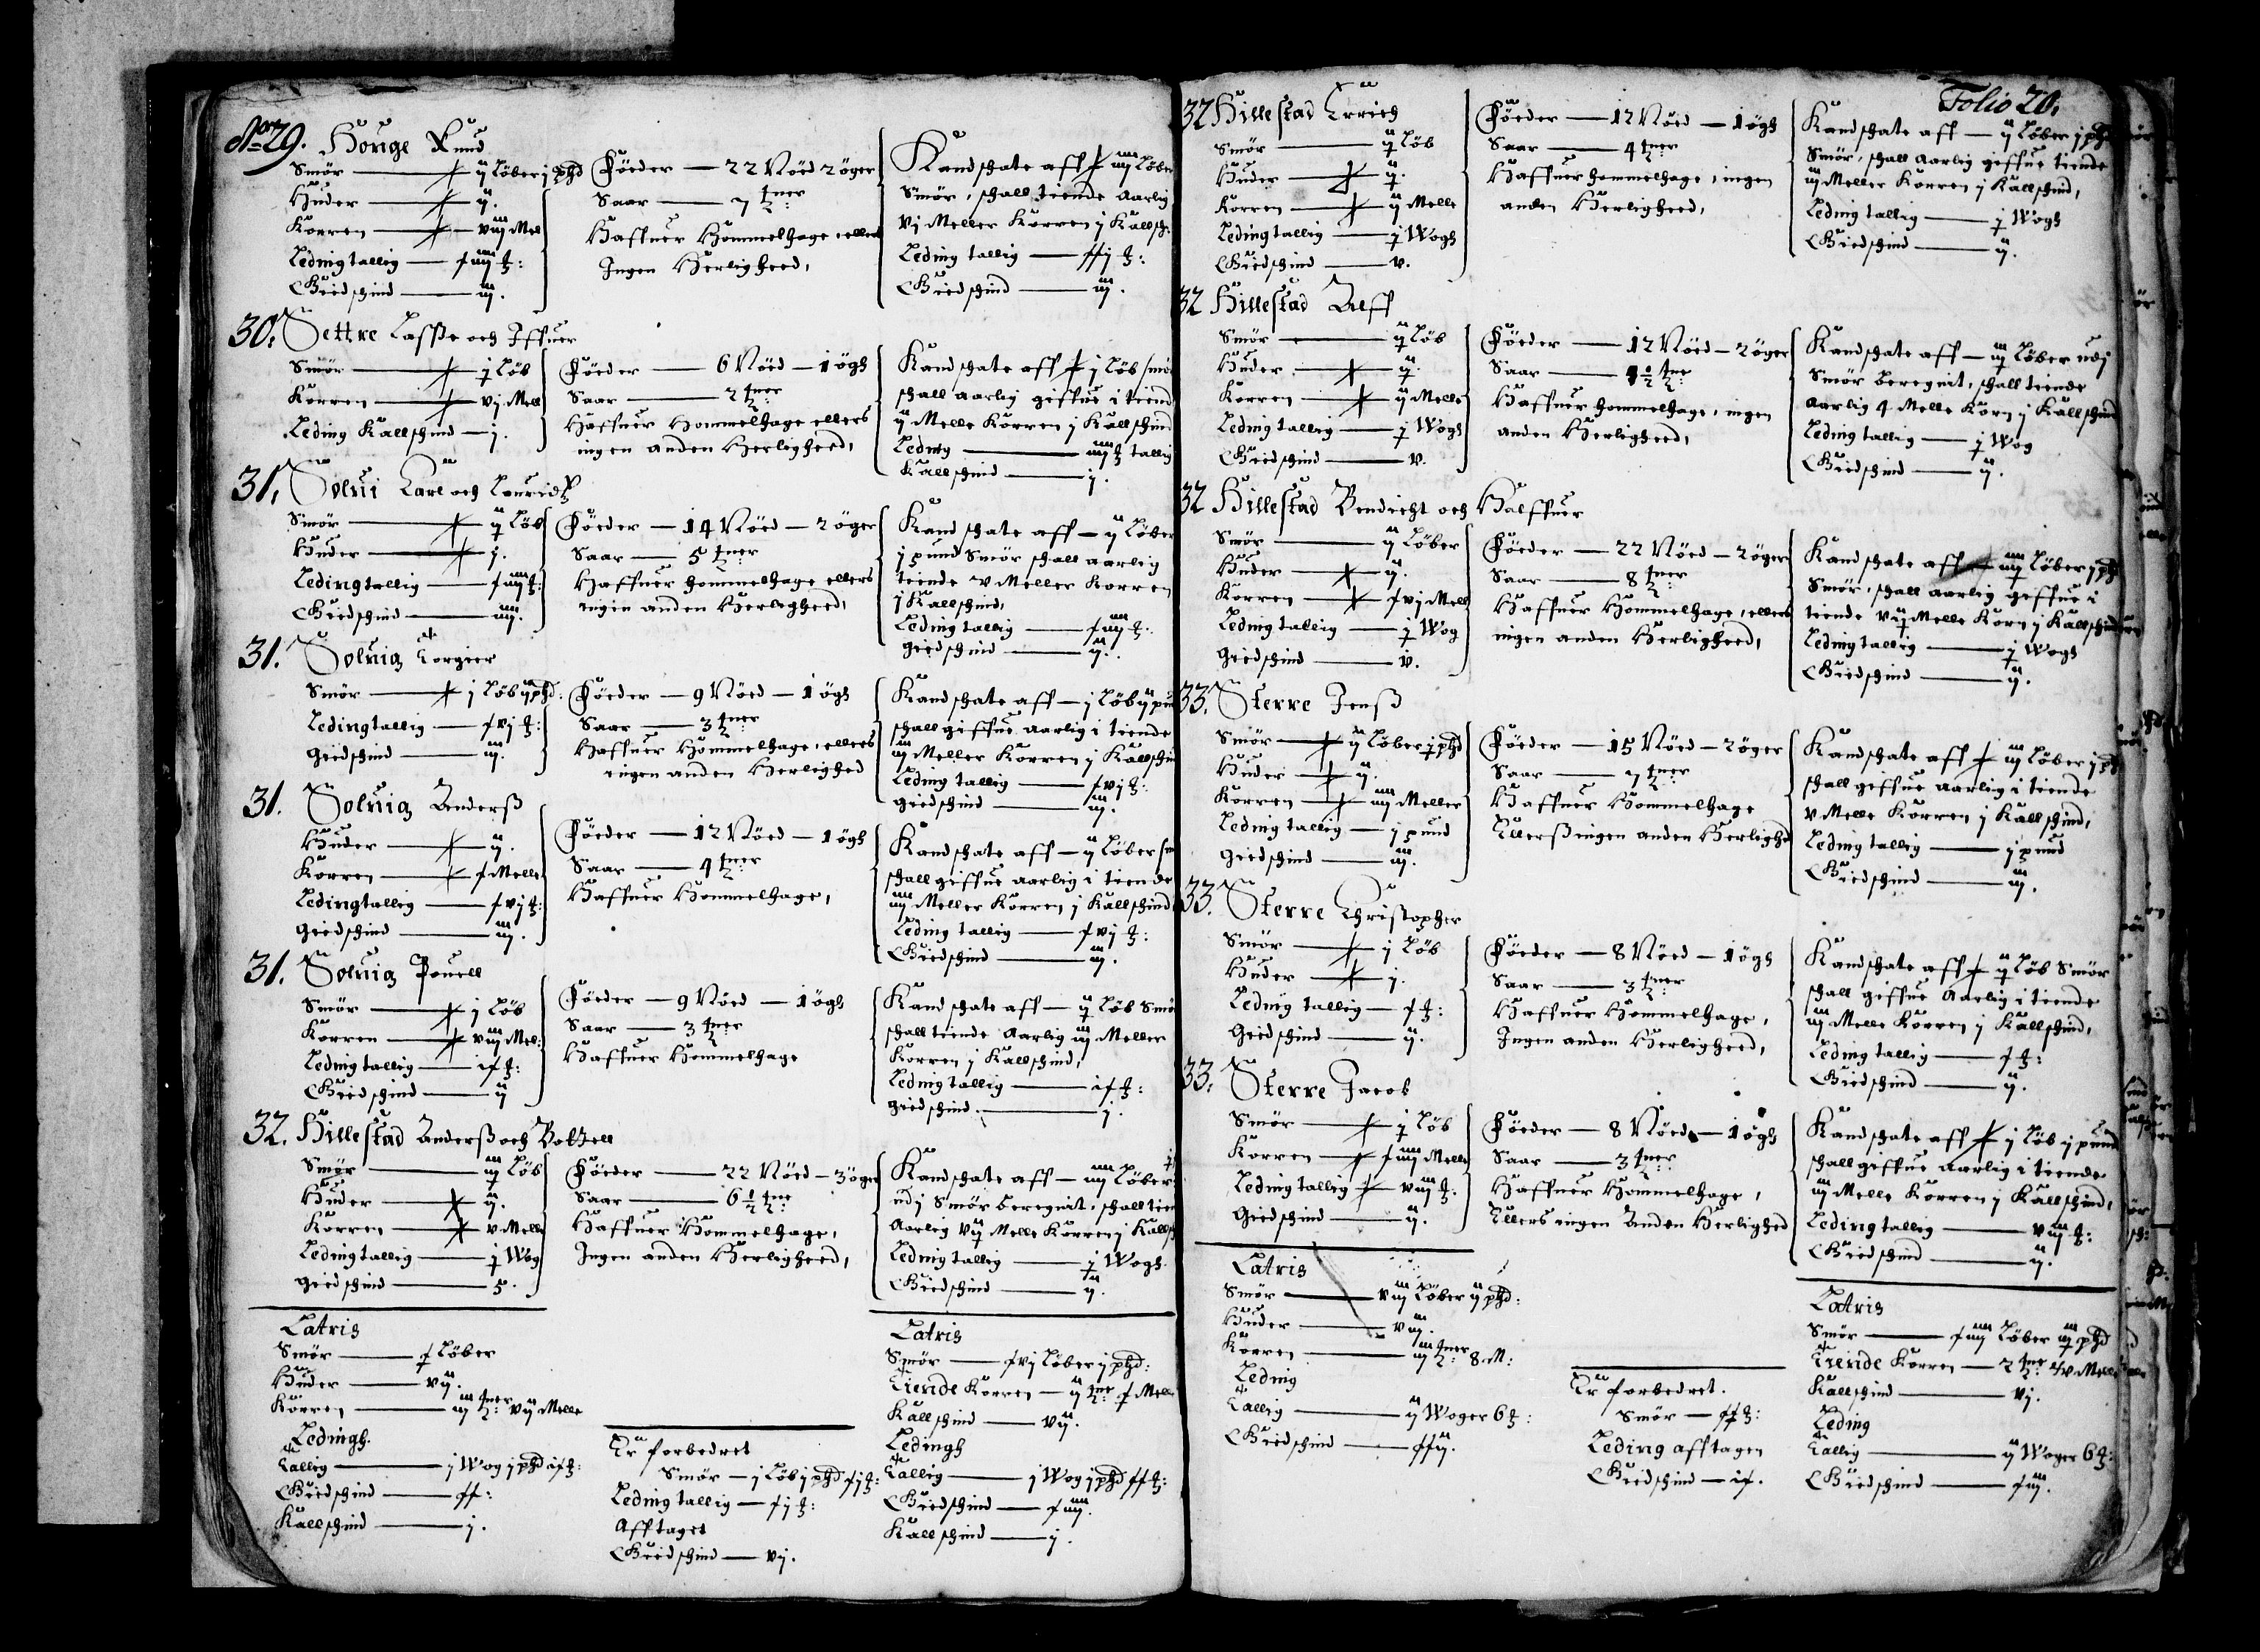 No 29. Houge Knud
Smör — ij Løber j phd
Huder — ij.
Korren — viij Mel
Leding tallig — xiiij ℔:
Giedschind — iij.
Föeder — 22 Nöed 2 öger
Saar — 7 tner
Haffuer Hommelhage, ellers
Ingen Herligheed,
Kand schate aff — iiij Løber
Smör, schall tiende Aarlig
vj Meller Korren j Kallsch:
Leding tallig — xxj ℔:
Giedschind — iij.
30. Settre Lasse och Iffuer
Smör — j Løb
Korren — vj Mell
Leding Kallschind — j.
Föeder — 6 Nöed — 1 ögh
Saar — 2 tner
Haffuer Hommelhage ellers
ingen anden Herligheed,
Kand schate aff j Løb smör
schall aarlig giffue i tiend
ij Melle Korren j Kallschind
Leding — iiij ℔ tallig
Kallschind — j.
31. Solui Lare och Louridtz
Smör — ij Løb
Huder — j.
Leding tallig — xiiij ℔:
Giedschind — iiij.
Föeder — 14 Nöed — 2 öger
Saar — 5 tner
Haffuer hommelhage ellers
ingen anden Herligheed,
Kand schate aff — ij Løber
j pund Smör schall aarlig
tiende v Meller Korren
j Kallschind,
Leding tallig — xiiij ℔:
Giedschind — ij.
31. Soluig Torgier
Smör — j Løb ij phd:
Leding tallig — xvj ℔:
Giedschind — iij.
Föeder — 9 Nöed — 1 ögh
Saar — 3 tner
Haffuer Hommelhage, ellers
ingen anden Herlighed
Kand schate aff — j Løb ij pu
schall giffue aarlig i tiende
iij Meller Korren j Kallschin
Leding tallig — xvj ℔:
Giedschind — iij.
31. Soluig Anderss
Huder — ij.
Korren — x Melle
Leding tallig — xvj ℔:
Giedschind — iiij.
Föeder — 12 Nöed — 1 ögh
Saar — 4 tner
Haffuer Hommelhage,
Kand schate aff — ij Løber sm
schall giffue aarlig i tiende
iiij Meller Korren j Kallschind
Leding tallig — xvj ℔:
Giedschind — iij.
31. Soluig Pouell
Smör — j Løb
Korren — viij Mel:
Leding tallig — ix ℔:
Giedschind — ij
Föeder — 9 Nöed — 1 ögh
Saar — 3 tner
Haffuer Hommelhage
Kand schate aff — ij Løb Smö
schall tiende Aarlig iij Meller
Korren j Kallschind,
Leding tallig — ix ℔:
Giedschind — j.
32. Hillestad Anderss och Bottell
Smör — iij Løb
Huder — ij.
Korren — v Melle
Leding tallig — j Wog
Giedschind — 5.
Föeder — 22 Nöed — 3 öger
Saar — 6 1/2 tne
Haffuer Hommelhage,
Ingen anden Herligheed,
Kand schate aff — iiij Løber
udj Smör beregnit, schall tien
Aarlig vij Melle Korren j Kallsch
Leding tallig — j Wogh
Giedschind — ij.
Latris
Smör — x Løber
Huder — vij.
Korren — iij tner vij Melle
Ledingh
Tallig — j Wog j phd ix ℔:
Giedschind — xx:
Kallschind — j.
Er forbedret
Smör — j Løb j phd xj ℔:
Leding tallig — xj ℔:
Afftaget
Giedschind — vj.
Latris
Smör — xvj Løber j phd:
Tiende Korren — ij tne x Melle
Kallschind — vij.
Ledingh
Tallig — j Wog j phd xx ℔:
Giedschind — xiiij.
Kallschind — j.
Folio 20.
32 Hillestad Errich
Smör — ij Løb
Huder — ij.
Korren — ij Melle
Leding tallig — j Wogh
Giedschind — v.
Föeder — 12 Nöed — 1 ögh
Saar — 4 tner
Haffuer hommelhage, ingen
anden Herligheed,
Kand schate aff — ij Løber j phd
Smör, schall Aarlig giffue tiende
iij Meller Korren j Kallschind,
Leding tallig — j Wogh
Giedschind — ij.
32 Hillestad Alff
Smör — ij Løb
Huder — ij.
Korren — ij Melle
Leding tallig — j Wogh
Giedschind — v.
Föeder — 12 Nöed — 2 öger
Saar — 4 1/2 tne
Haffuer hommelhage, ingen
anden Herligheed,
Kand schate aff — iij Løber udj
Smör beregnit, schall tiende
aarlig 4 Melle Korn j Kallschind
Leding tallig — j Wog
Giedschind — ij.
32 Hillestad Bendicht och Halffuer
Smör — ij Løber
Huder — ij.
Korren — xvj Mell
Leding tallig — j Wog
Giedschind — v.
Föeder — 22 Nöed — 2 öger
Saar — 8 tner
Haffuer Hommelhage, ellers
ingen anden Herligheed,
Kand schate aff — iiij Løber j phd
Smör, schall aarlig giffue i
tiende vij Melle Korn j Kallschind
Leding tallig — j Wogh
Giedschind — ij.
33. Sterre Jenss
Smör — ij Løber j phd
Huder — ij.
Korren — iiij Meller
Leding tallig — j pund
Giedschind — iij.
Föeder — 15 Nöed — 2 öger
Saar — 7 tner
Haffuer Hommelhage
Ellerss ingen anden Herlighd
Kand schate aff — iij Løber j phd
schall giffue aarlig i tiende
v Melle Korren j Kallschind,
Leding tallig — j pund
Giedschind — iij.
33. Sterre Christopher
Smör — j Løb
Huder — j.
Leding tallig — x ℔:
Giedschind — ij.
Föeder — 8 Nöed — 1 ögh
Saar — 3 tner
Haffuer Hommelhage,
Ingen anden Herligheed,
Kand schate aff — ij Løb Smör
schall giffue Aarlig i tiende
iij Melle Korren j Kallschind,
Leding tallig — x ℔:
Giedschind — ij.
33. Sterre Jacob
Smör — j Løb
Korren — xiiij Melle
Leding tallig — viij ℔:
Giedschind — ij.
Föeder — 8 Nöed — 1 ögh
Saar — 3 tner
Haffuer Hommelhage,
Ellers ingen Anden Herlighed
Kand schate aff j Løb ij pund
schall giffue Aarlig i tiende
iij Melle Korren j Kallschind,
Leding tallig — viij ℔:
Giedschind — ij.
Latris
Smör — viij Løber ij phd:
Huder — viij.
Korren — iij tner 8 M:
Leding
Tallig — ij Woger 6 ℔:
Giedschind — xxij.
Er forbedret.
Smör — xx ℔:
Leding afftagen
Giedschind — ix.
Latris
Smör — xiiij Løber iij phd
Tiende Korren — 2 tne v Melle
Kallschind — vj.
Leding
Tallig — ij Woger 6 ℔:
Giedschind — xiij.